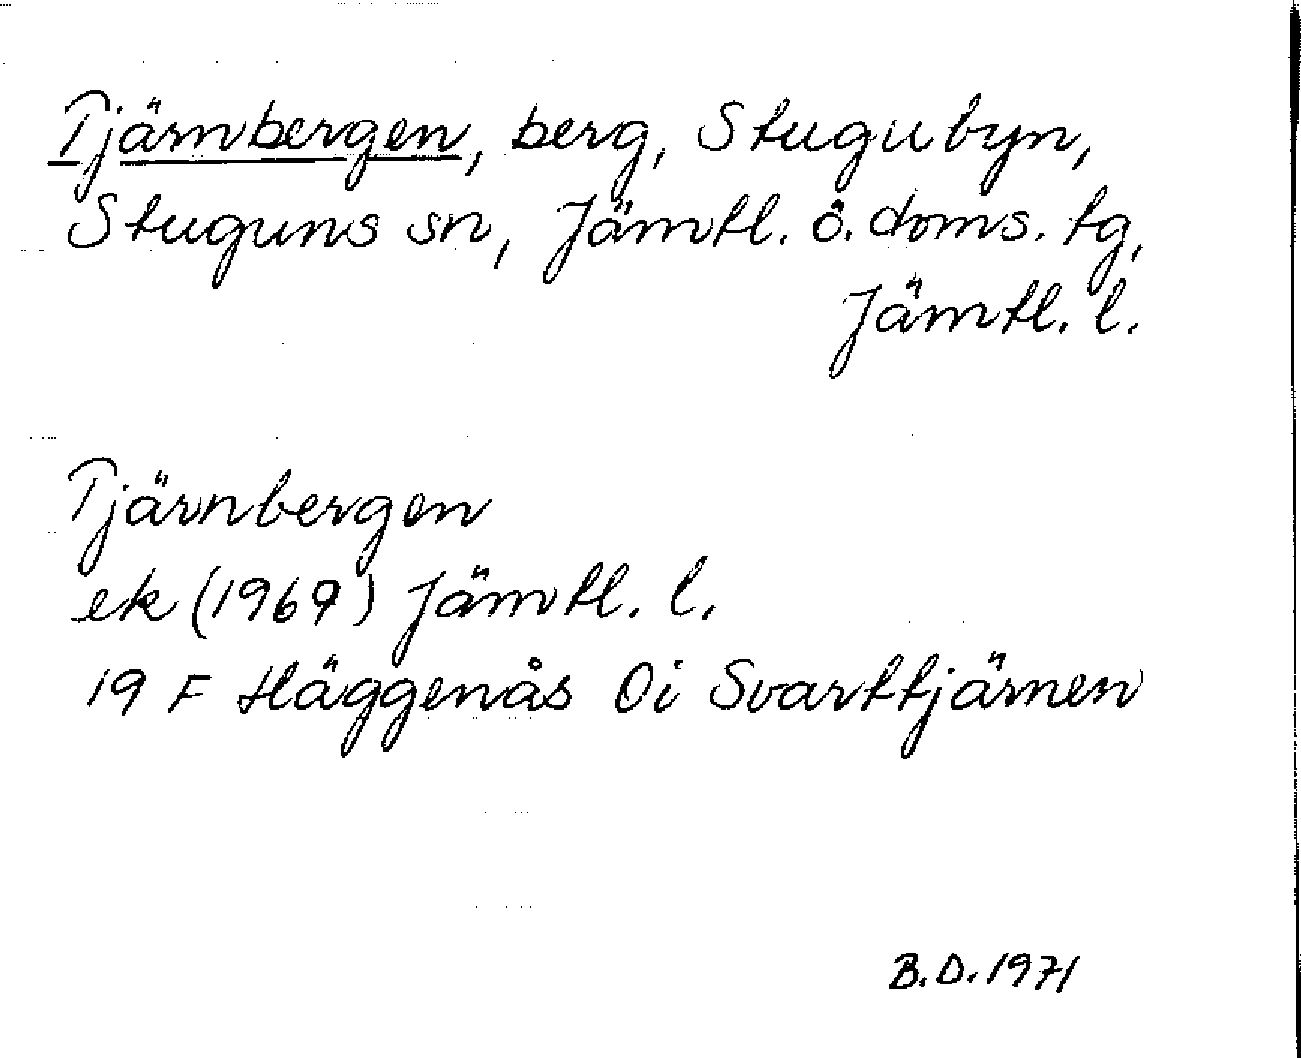 Tjärnbergen, berg, Stugubyn,
Stuguns sn, Jämtl. ö. doms. tg,
Jämtl. l.
Tjärnbergen
ek (1969) Jämtl. l.
19 F Häggenås 0i Svarttjärnen
B.D. 1971